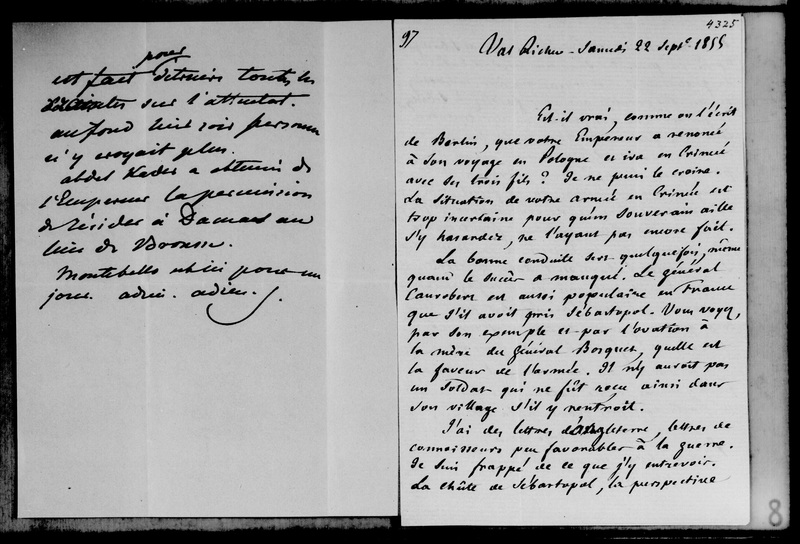 pour
est fait détruire toutes les
sur l'attentat.
au fond ici personne
n'y croyait plus.
abdel Kader a obtenu de
l'Empereur la permission
de résider à Damas au
lieu de Brousse.
Montebello est ici pour un
jour. adieu. adieu.
4325
97
Val Richer - Samedi 22 Septe 1855
Est-il vrai, comme on l'écrit
de Berlin, que votre Empereur a renoncé
à son voyage en Pologne et ira en Crimée
avec ses trois fils ? Je ne puis le croire.
La situation de votre armée en Crimée est
trop incertaine pour qu'un Souverain aille
s'y hasarder, ne l'ayant pas encore fait.
La bonne conduite sert quelquefois, même
quand le succès a manqué. Le général
Canrobert est aussi populaire en France
que s'il avoit pris Sébastopol. Vous voyez,
par son exemple et par l'ovation à
la mère du général Bosquet, quelle est
la faveur de l'armée. Il n'y auroit pas
un soldat qui ne fût reçu ainsi dans
son village s'il y rentroit.
J'ai des lettres d'Angleterre, lettres de
connoisseurs peu favorables à la guerre.
Je suis frappé de ce que j'y entrevois.
La chûte de Sébastopol, la perspective
8